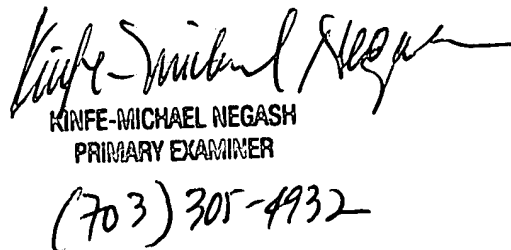 Kinfe-Michael Negash
KINFE-MICHAEL NEGASH
PRIMARY EXAMINER
(703) 305-4932